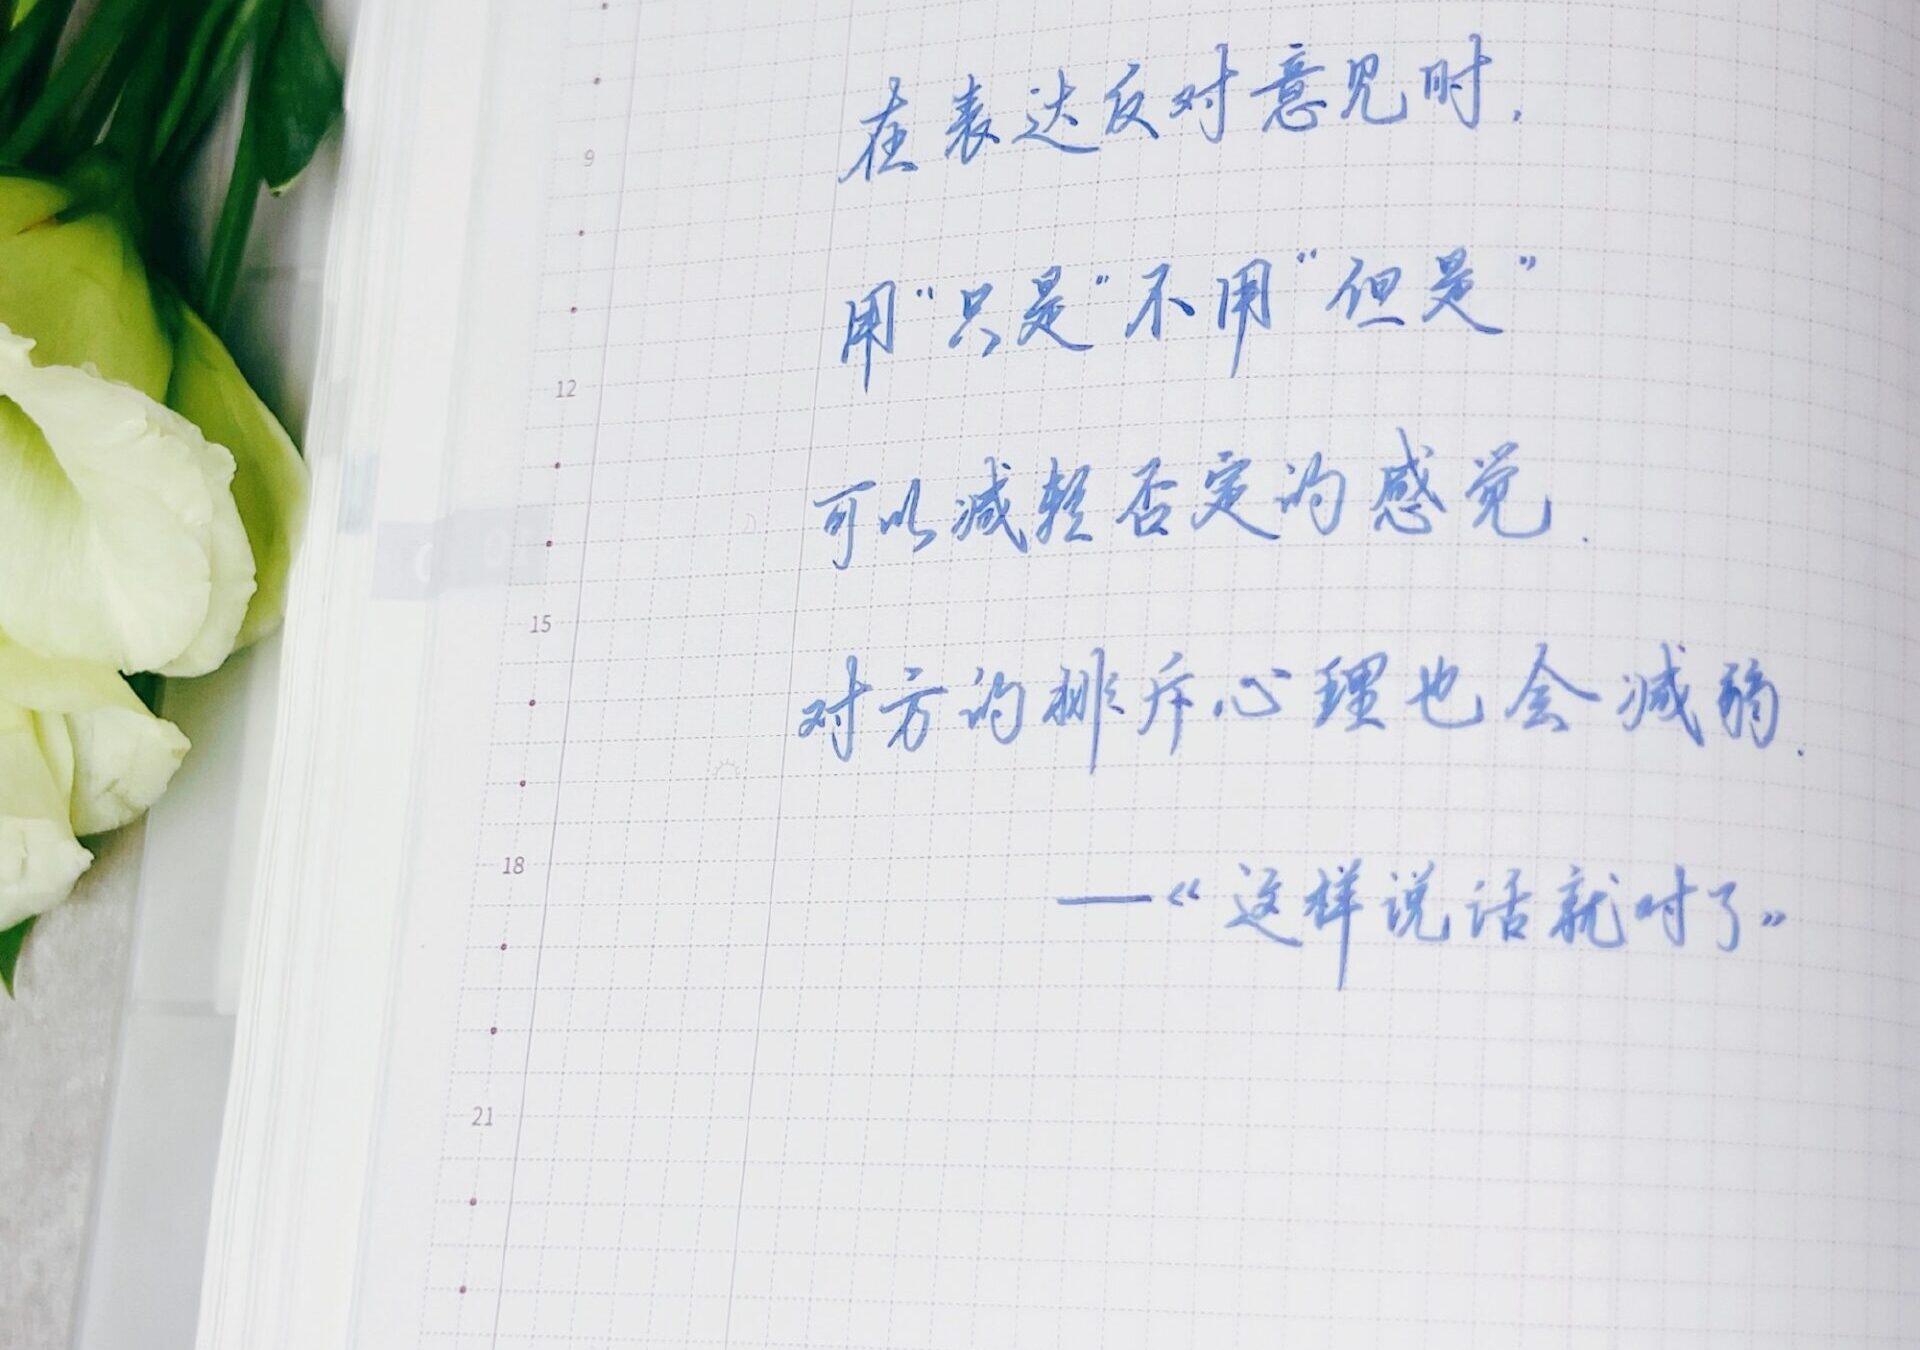 在表达反对意见时.
用“只是”不用“但是”
可以减轻否定的感觉.
对方的排斥心理也会减弱.
—《这样说话就对了》
9
12
15
18
21